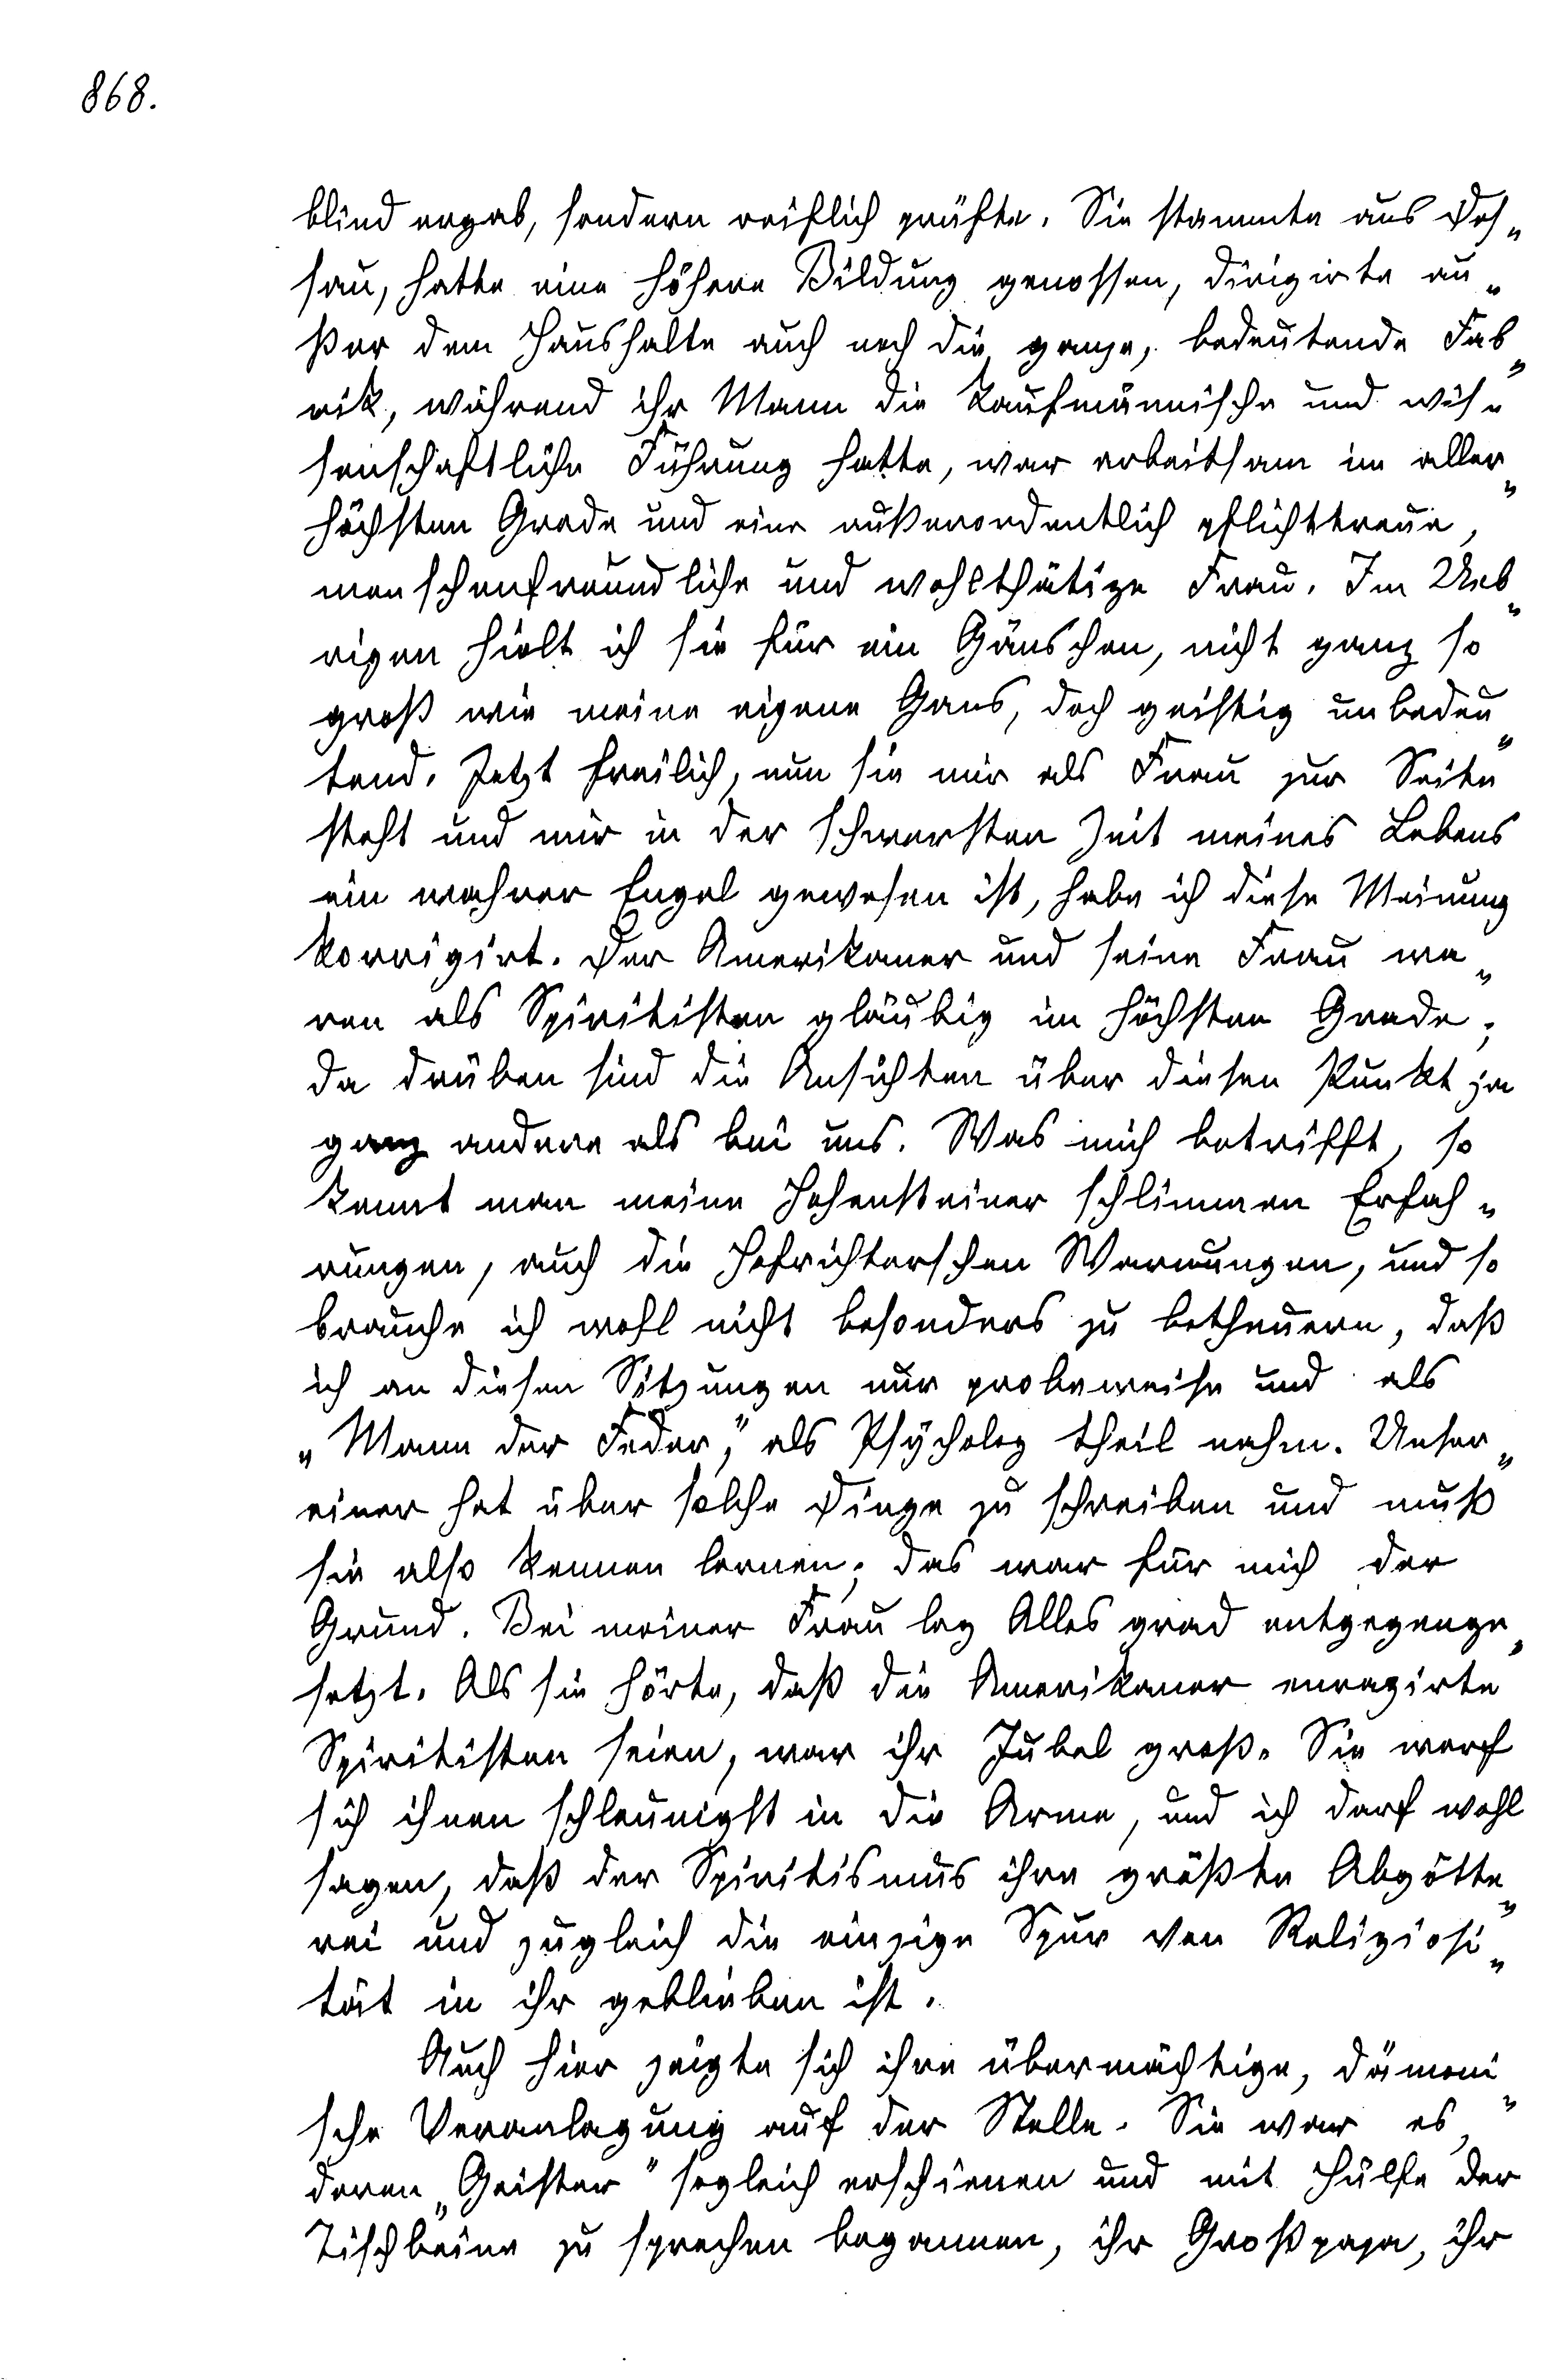 868.
blind ergab, sondern reiflich prüfte. Sie stammte aus Des„
sau, hatte eine höhere Bildung genossen, dirigirte au„
ßer dem Haushalte auch noch die ganze, bedeutende Fab„
rik, während ihr Mann die kaufmännische und wis„
senschaftliche Führung hatte, war arbeitsam im aller„
höchsten Grade und eine außerordentlich pflichttreue,
menschenfreundliche und wohlthätige Frau. Im Ueb„
rigen hielt ich sie für ein Gänschen, nicht ganz so
groß wie meine eigene Gans, doch geistig unbedeu„
tend. Jetzt freilich, nun sie mir als Frau zur Seite
steht und mir in der schwersten Zeit meines Lebens
ein wahrer Engel gewesen ist, habe ich diese Meinung
korrigirt. Der Amerikaner und seine Frau wa„
ren als Spiritisten gläubig im höchsten Grade;
da drüben sind die Ansichten über diesen Punkt ja
ganz andere als bei uns. Was mich betrifft, so
kennt man meine Hohensteiner schlimmen Erfah„
rungen, auch die Hofrichterschen Warnungen, und so
brauche ich wohl nicht besonders zu betheuern, daß
ich an diesen Sitzungen nur probeweise und als
„Mann der Feder,“ als Psycholog theil nahm. Unser„
einer hat über solche Dinge zu schreiben und muß
sie also kennen lernen; das war für mich der
Grund. Bei meiner Frau lag Alles grad entgegenge„
setzt. Als sie hörte, daß die Amerikaner enragirte
Spiritisten seien, war ihr Jubel groß. Sie warf
sich ihnen schleunigst in die Arme, und ich darf wohl
sagen, daß der Spiritismus ihre größte Abgötte„
rei und zugleich die einzige Spur von Religiosi„
tät in ihr geblieben ist.
Auch hier zeigte sich ihre übermächtige, dämoni„
sche Veranlagung auf der Stelle. Sie war es,
deren „Geister“ sogleich erschienen und mit Hülfe der
Tischbeine zu sprechen begannen, ihr Großpapa, ihr